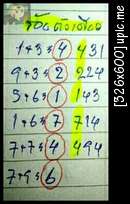 1+3=4 431
9+3=2 224
5+6=1 143
1+6=7 714
7+7=4 494
7+9=6
[326x600] upic.me